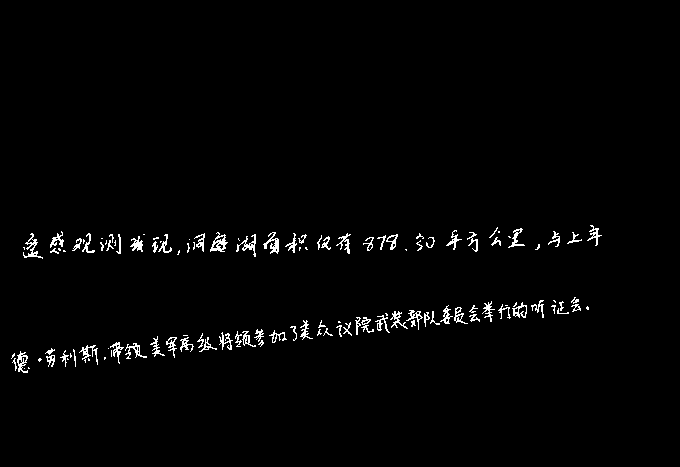 遥感观测发现,洞庭湖面积仅有878.30平方公里,与上年
德·劳利斯,带领美军高级将领参加了美众议院武装部队委员会举行的听证会。